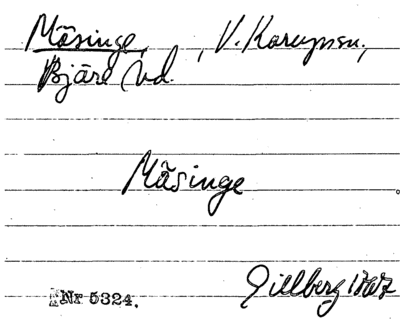 Måsinge, , V. Karupssn.,
Bjäre hd.
Måsinge
Gillberg 1767
Nr 5324.